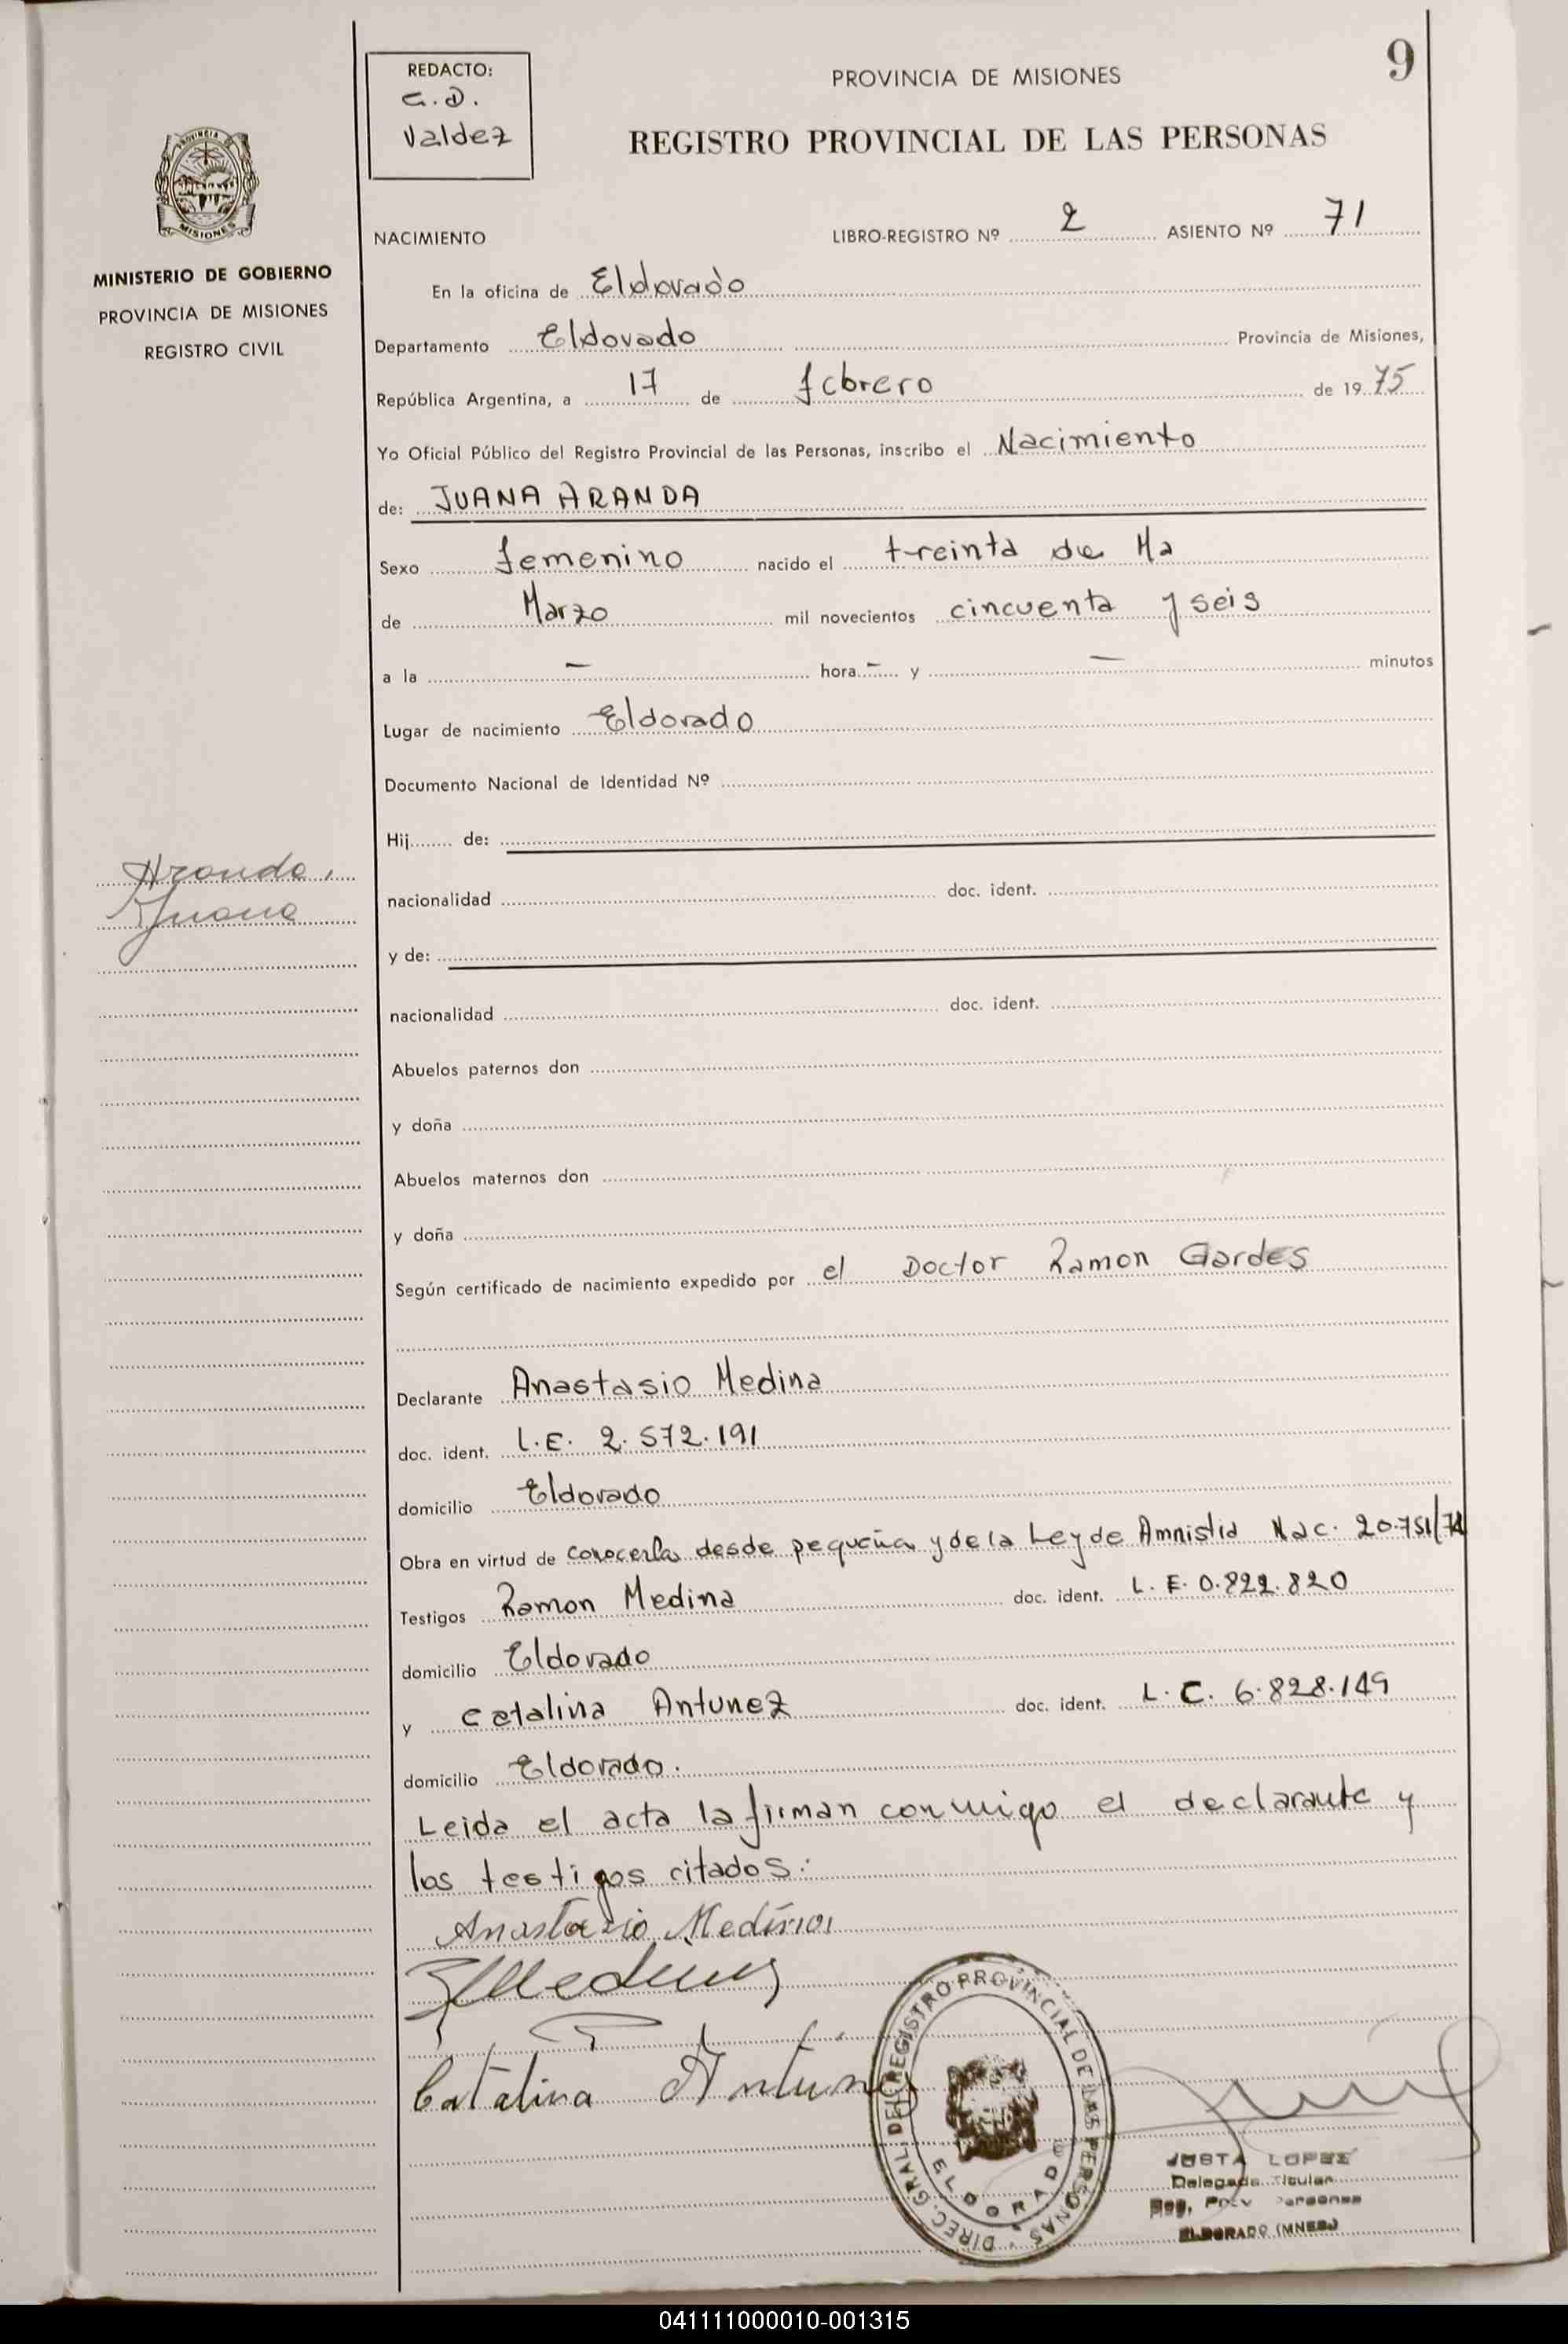 9
REDACTO:
C. D.
Valdez
PROVINCIA DE MISIONES
REGISTRO PROVINCIAL DE LAS PERSONAS
PROVINCIA
MISIONES
MINISTERIO DE GOBIERNO
PROVINCIA DE MISIONES
REGISTRO CIVIL
NACIMIENTO LIBRO-REGISTRO Nº 2 ASIENTO Nº 71
En la oficina de Eldorado
Departamento Eldorado Provincia de Misiones,
República Argentina, a 17 de febrero de 1975
Yo Oficial Público del Registro Provincial de las Personas, inscribo el Nacimiento
de: JUANA ARANDA
Sexo femenino nacido el treinta de Ma
de Marzo mil novecientos cincuenta y seis
a la — hora - y — minutos
Lugar de nacimiento Eldorado
Documento Nacional de Identidad Nº
Hij........ de:
Aranda,
Juana
nacionalidad doc. ident.
y de:
nacionalidad doc. ident.
Abuelos paternos don
y doña
Abuelos maternos don
y doña
Según certificado de nacimiento expedido por el Doctor Ramon Gardes
Declarante Anastasio Medina
doc. ident. L.E. 2.572.191
domicilio Eldorado
Obra en virtud de conocerla desde pequeña y de la Ley de Amnistia Nac. 20.751/74
Testigos Ramon Medina doc. ident. L.E. 0.822.820
domicilio Eldorado
y Catalina Antunez doc. ident. L.C. 6.828.149
domicilio Eldorado.
Leida el acta la firman conmigo el declarante y
los testigos citados:
Anastasio Medina
RMedina
Catalina Antun
DIREC. GRAL. DEL REGISTRO PROVINCIAL DE LAS PERSONAS
ELDORADO
JUSTA LOPEZ
Delegada Titular
Reg. Prov Personas
ELDORADO (MNES.)
041111000010-001315